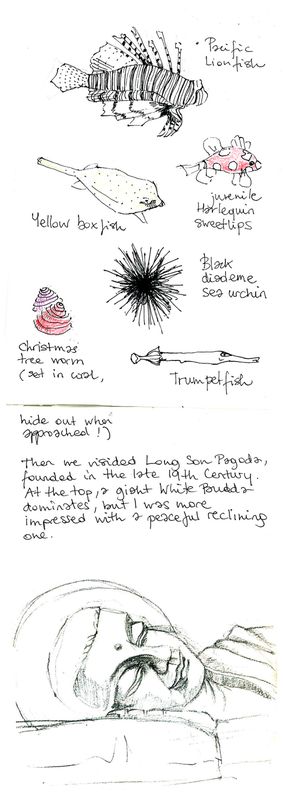 Pacific
Lionfish
Yellow boxfish
juvenile
Harlequin
sweetlips
Black
diademe
sea urchin
Christmas
tree worm
(set in coral,
Trumpetfish
hide out when
approached !)
Then we visided Long Son Pagoda,
founded in the late 19th Century.
At the top, a giant White Budda
dominates, but I was more
impressed with a peaceful reclining
one.